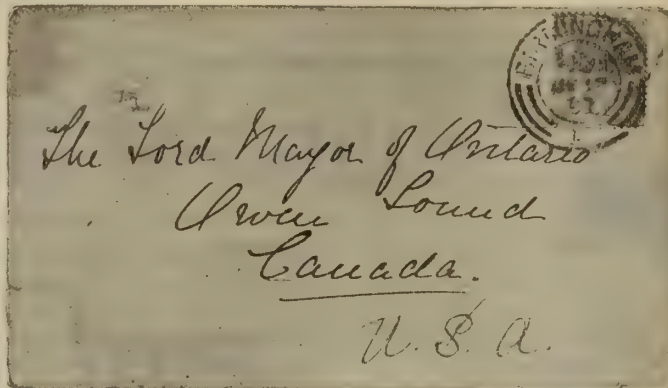 BIRMINGHAM
The Lord Mayor of Ontario
Owen Sound
Canada.
U. S. A.